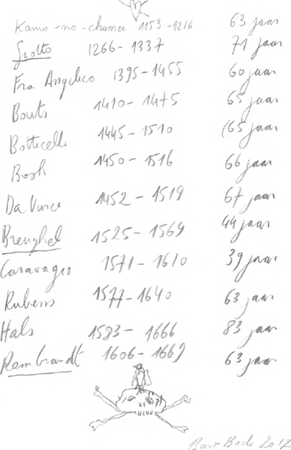 Kamo-no-chomei 1153-1216 63 jaar
Giotto 1266-1337 71 jaar
Fra Angelico 1395-1455 60 jaar
Bouts 1410-1475 65 jaar
Botticelli 1445-1510 (65 jaar
Bosh 1450-1516 66 jaar
Da Vinci 1452-1519 67 jaar
Breughel 1525-1569 44 jaar
Caravagio 1571-1610 39 jaar
Rubens 1577-1640 63 jaar
Hals 1583-1666 83 jaar
Rembrandt 1606-1669 63 jaar
Bart 2012